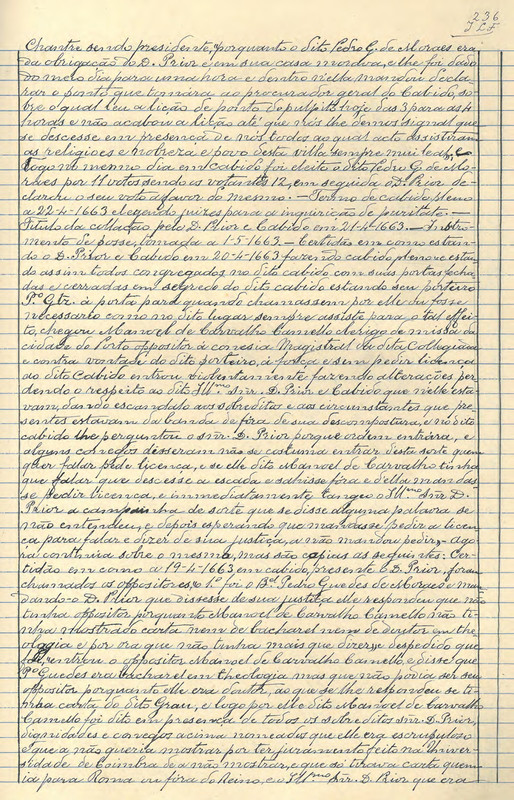 236
J L F
Chantre sendo presidente, porquanto o dito Pedro G. de Moraes era
da obrigação do D. Prior e em sua casa morava, e lhe foi dado
do meio dia para uma hora e dentro nella mandou decla-
rar o ponto que tomára ao procurador geral do Cabido, so-
bre o qual leu a lição de ponto de pulpito hoje das 3 para as 4
horas e não acabou a lição até que nós lhe demos signal que
se descesse em presença de nós todos ao qual acto assistiram
as religiões e nobreza e povo desta villa sempre mui leal, e
logo no mesmo dia em Cabido foi eleito o dito Pedro G. de Mo-
raes por 11 votos sendo os votantes 12, em seguida o D. Prior de-
clarou o seu voto a favor do mesmo. — Termo de cabido pleno
a 22-4-1663 elegendo juizes para a inquirição de puritate. —
Titulo da collação pelo D. Prior e Cabido em 21-4-1663. — Instru-
mento de posse, tomada a 1-5-1663. — Certidão em como estan-
do o D. Prior e Cabido em 20-4-1663 fazendo cabido pleno e estan-
do assim todos congregados no dito cabido com suas portas fecha-
das e cerradas em segredo do dito cabido estando seu porteiro
Pº Gtz. á porta para quando chamassem por elle ou fosse
necessario como no dito lugar sempre assiste para o tal effei-
to, chegou Manoel de Carvalho Camello clerigo de missa da
cidade do Porto oppositor á conesia Magistral da dita Collegiada
e contra vontade do dito porteiro, á força e sem pedir licença
ao dito Cabido entrou violentamente fazendo alterações per-
dendo o respeito ao dito Illmo Snr. D. Prior e Cabido que nelle esta-
vam, dando escandalo aos sobreditos e aos circunstantes que pre-
sentes estavam da banda de fóra de sua descompostura, e no dito
cabido lhe perguntou o snr. D. Prior porque ordem entrára, e
alguns conegos disseram não se costuma entrar desta sorte quem
quer falar pede licença, e se elle dito Manoel de Carvalho tinha
que falar que descesse a escada e sahisse fóra e della mandas-
se pedir licença, e immediatamente tangeo o Illmo Snr D.
Prior a campainha de sorte que se disse alguma palavra se
não entendeu, e depois esperando que mandasse pedir a licen-
ça para falar e dizer de sua justiça, a não mandou pedir. — Ago-
ra continúa sobre o mesmo, mas são copias as seguintes: Cer-
tidão em como a 19-4-1663 em cabido, presente o D. Prior, foram
chamados os oppositores, o 1º foi o Bel. Pedro Guedes de Moraes e man-
dando-o D. Prior que dissesse de sua justiça elle respondeu que não
tinha oppositor porquanto Manoel de Carvalho Camello não ti-
nha mostrado carta nem de bacharel nem de doutor em the-
ologia e por ora que não tinha mais que dizer, e despedido que
foi, entrou o oppositor Manoel de Carvalho Camello, e disse que
Pº Guedes era bacharel em theologia mas que não podia ser seu
oppositor porquanto elle era doutor, ao que se lhe respondeu se ti-
nha carta do dito Grau, e logo por elle dito Manoel de Carvalho
Camello foi dito em presença de todos os sobreditos snr. D. Prior,
dignidades e conegos acima nomeados que elle era escrupuloso
e que a não queria mostrar por ter juramento feito na Univer-
sidade de Coimbra de a não mostrar, e que só tirava carta quem
ia para Roma ou fóra do Reino, e o Illmo Snr. D. Prior que era